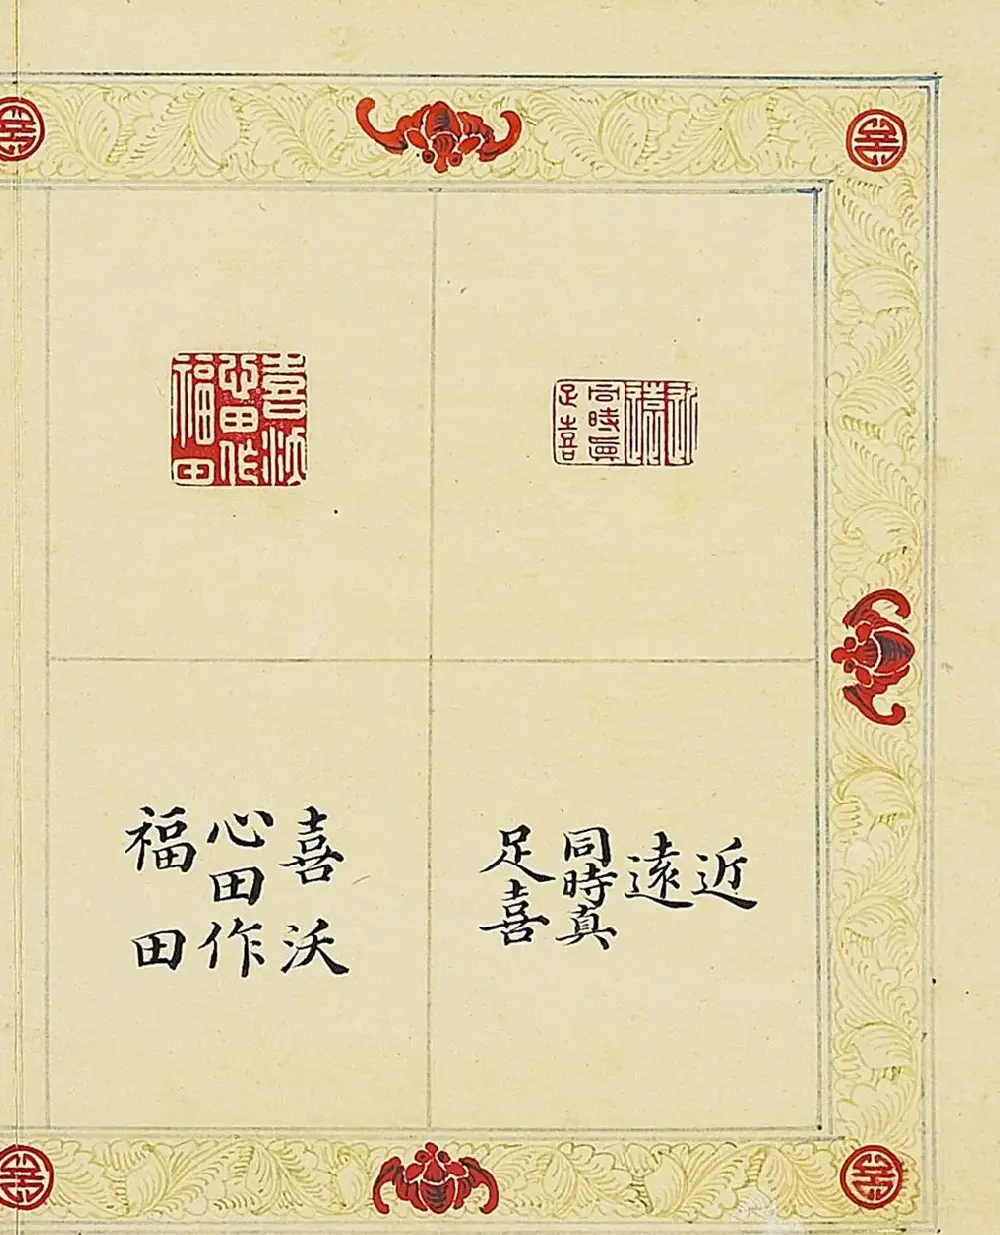 近
遠
同時眞
足喜
喜沃
心田作
福田
近
遠
同時真
足喜
喜沃
心田作
福田